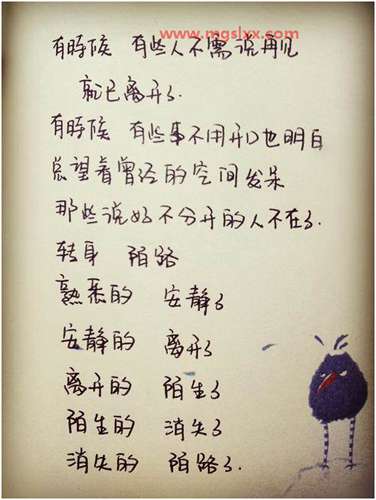 www.mgslxx.com
有时候 有些人不需说再见
就已离开了.
有时候 有些事不用开口也明白
总望着曾经的空间发呆
那些说好不分开的人不在了.
转身 陌路
熟悉的 安静了
安静的 离开了
离开的 陌生了
陌生的 消失了
消失的 陌路了.